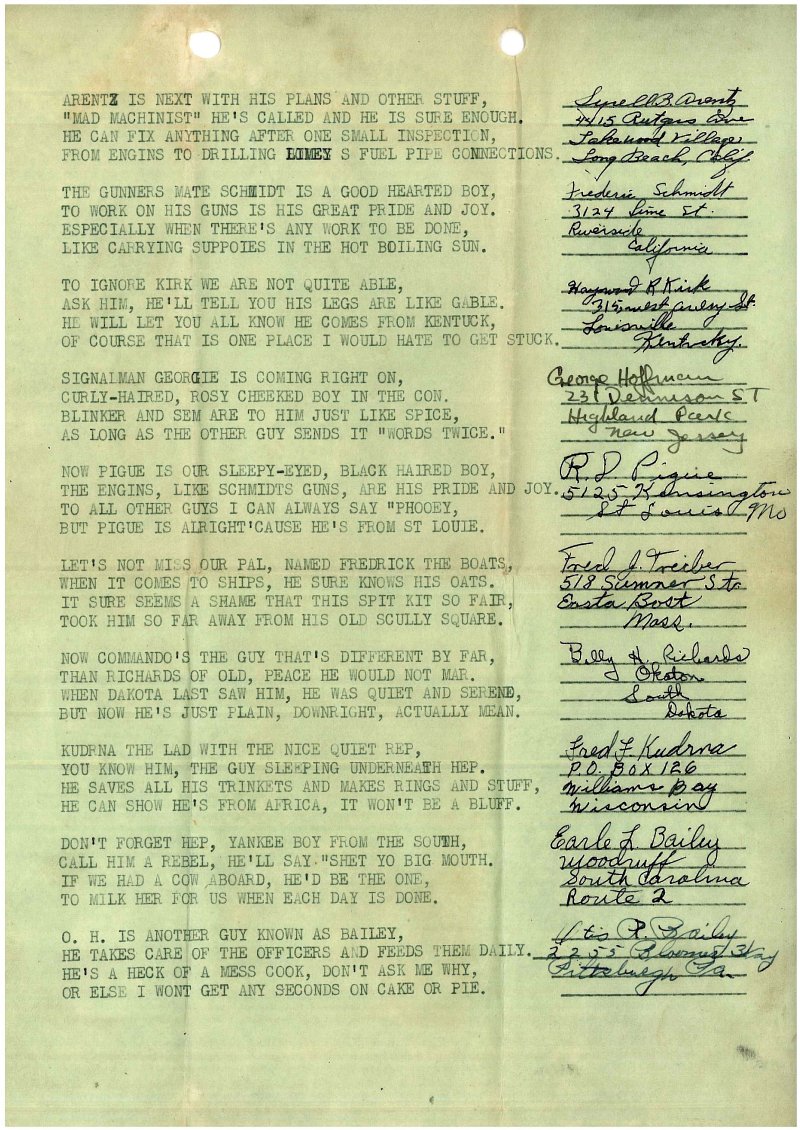 ARENTZ IS NEXT WITH HIS PLANS AND OTHER STUFF,
"MAD MACHINIST" HE'S CALLED AND HE IS SURE ENOUGH.
HE CAN FIX ANYTHING AFTER ONE SMALL INSPECTION,
FROM ENGINS TO DRILLING LIMEY S FUEL PIPE CONNECTIONS.
Lyrell B. Arentz
4415 Rutgers Ave
Lakewood Village
Long Beach, Calif
THE GUNNERS MATE SCHMIDT IS A GOOD HEARTED BOY,
TO WORK ON HIS GUNS IS HIS GREAT PRIDE AND JOY.
ESPECIALLY WHEN THERE'S ANY WORK TO BE DONE,
LIKE CARRYING SUPPOIES IN THE HOT BOILING SUN.
Frederic Schmidt
3124 Lime St.
Riverside
California
TO IGNORE KIRK WE ARE NOT QUITE ABLE,
ASK HIM, HE'LL TELL YOU HIS LEGS ARE LIKE GABLE.
HE WILL LET YOU ALL KNOW HE COMES FROM KENTUCK,
OF COURSE THAT IS ONE PLACE I WOULD HATE TO GET STUCK.
Haywood R Kirk
315 west St.
Louisville
Kentucky.
SIGNALMAN GEORGIE IS COMING RIGHT ON,
CURLY-HAIRED, ROSY CHEEKED BOY IN THE CON.
BLINKER AND SEM ARE TO HIM JUST LIKE SPICE,
AS LONG AS THE OTHER GUY SENDS IT "WORDS TWICE."
George Hoffmann
231 Dennison ST
Highland Park
New Jersey
NOW PIGUE IS OUR SLEEPY-EYED, BLACK HAIRED BOY,
THE ENGINS, LIKE SCHMIDTS GUNS, ARE HIS PRIDE AND JOY.
TO ALL OTHER GUYS I CAN ALWAYS SAY "PHOOEY,
BUT PIGUE IS ALRIGHT'CAUSE HE'S FROM ST LOUIE.
R. D Pigue
5125 Kensington
St Louis Mo
LET'S NOT MISS OUR PAL, NAMED FREDRICK THE BOATS,
WHEN IT COMES TO SHIPS, HE SURE KNOWS HIS OATS.
IT SURE SEEMS A SHAME THAT THIS SPIT KIT SO FAIR,
TOOK HIM SO FAR AWAY FROM HIS OLD SCULLY SQUARE.
Fred J. Treiber
518 Sumner Str
Easta Bost
Mass.
NOW COMMANDO'S THE GUY THAT'S DIFFERENT BY FAR,
THAN RICHARDS OF OLD, PEACE HE WOULD NOT MAR.
WHEN DAKOTA LAST SAW HIM, HE WAS QUIET AND SERENE,
BUT NOW HE'S JUST PLAIN, DOWNRIGHT, ACTUALLY MEAN.
Billy H. Richards
Okaton
South
Dakota
KUDRNA THE LAD WITH THE NICE QUIET REP,
YOU KNOW HIM, THE GUY SLEEPING UNDERNEATH HEP.
HE SAVES ALL HIS TRINKETS AND MAKES RINGS AND STUFF,
HE CAN SHOW HE'S FROM AFRICA, IT WON'T BE A BLUFF.
Fred F Kudrna
P.O. BOX 126
Williams Bay
Wisconsin
DON'T FORGET HEP, YANKEE BOY FROM THE SOUTH,
CALL HIM A REBEL, HE'LL SAY "SHET YO BIG MOUTH.
IF WE HAD A COW ABOARD, HE'D BE THE ONE,
TO MILK HER FOR US WHEN EACH DAY IS DONE.
Earle L. Bailey
Woodruff
South Carolina
Route 2
O. H. IS ANOTHER GUY KNOWN AS BAILEY,
HE TAKES CARE OF THE OFFICERS AND FEEDS THEM DAILY.
HE'S A HECK OF A MESS COOK, DON'T ASK ME WHY,
OR ELSE I WONT GET ANY SECONDS ON CAKE OR PIE.
Otis R. Bailey
2255
Pittsburgh Pa.